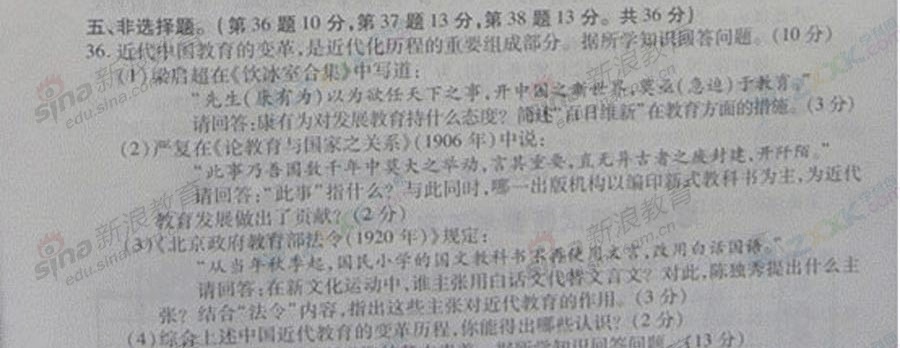 五、非选择题。(第36题10分,第37题13分,第38题13分。共36分)
36.近代中国教育的变革,是近代化历程的重要组成部分。据所学知识回答问题。(10分)
(1)梁启超在《饮冰室合集》中写道:
“先生(康有为)以为欲任天下之事,开中国之新世界,莫亟(急迫)于教育。”
请回答:康有为对发展教育持什么态度?简述“百日维新”在教育方面的措施。(3分)
(2)严复在《论教育与国家之关系》(1906年)中说:
“此事乃吾国数千年中莫大之举动,言其重要,直无异古者之废封建,开阡陌。”
请回答:“此事”指什么?与此同时,哪一出版机构以编印新式教科书为主,为近代
教育发展做出了贡献?(2分)
(3)《北京政府教育部法令(1920年)》规定:
“从当年秋季起,国民小学的国文教科书不再使用文言,改用白话国语。”
请回答:在新文化运动中,谁主张用白话文代替文言文?对此,陈独秀提出什么主
张?结合“法令”内容,指出这些主张对近代教育的作用。(3分)
(4)综合上述中国近代教育的变革历程,你能得出哪些认识?(2分)
据所学知识回答问题。(13分)
sina新浪教育
edu.sina.com.cn